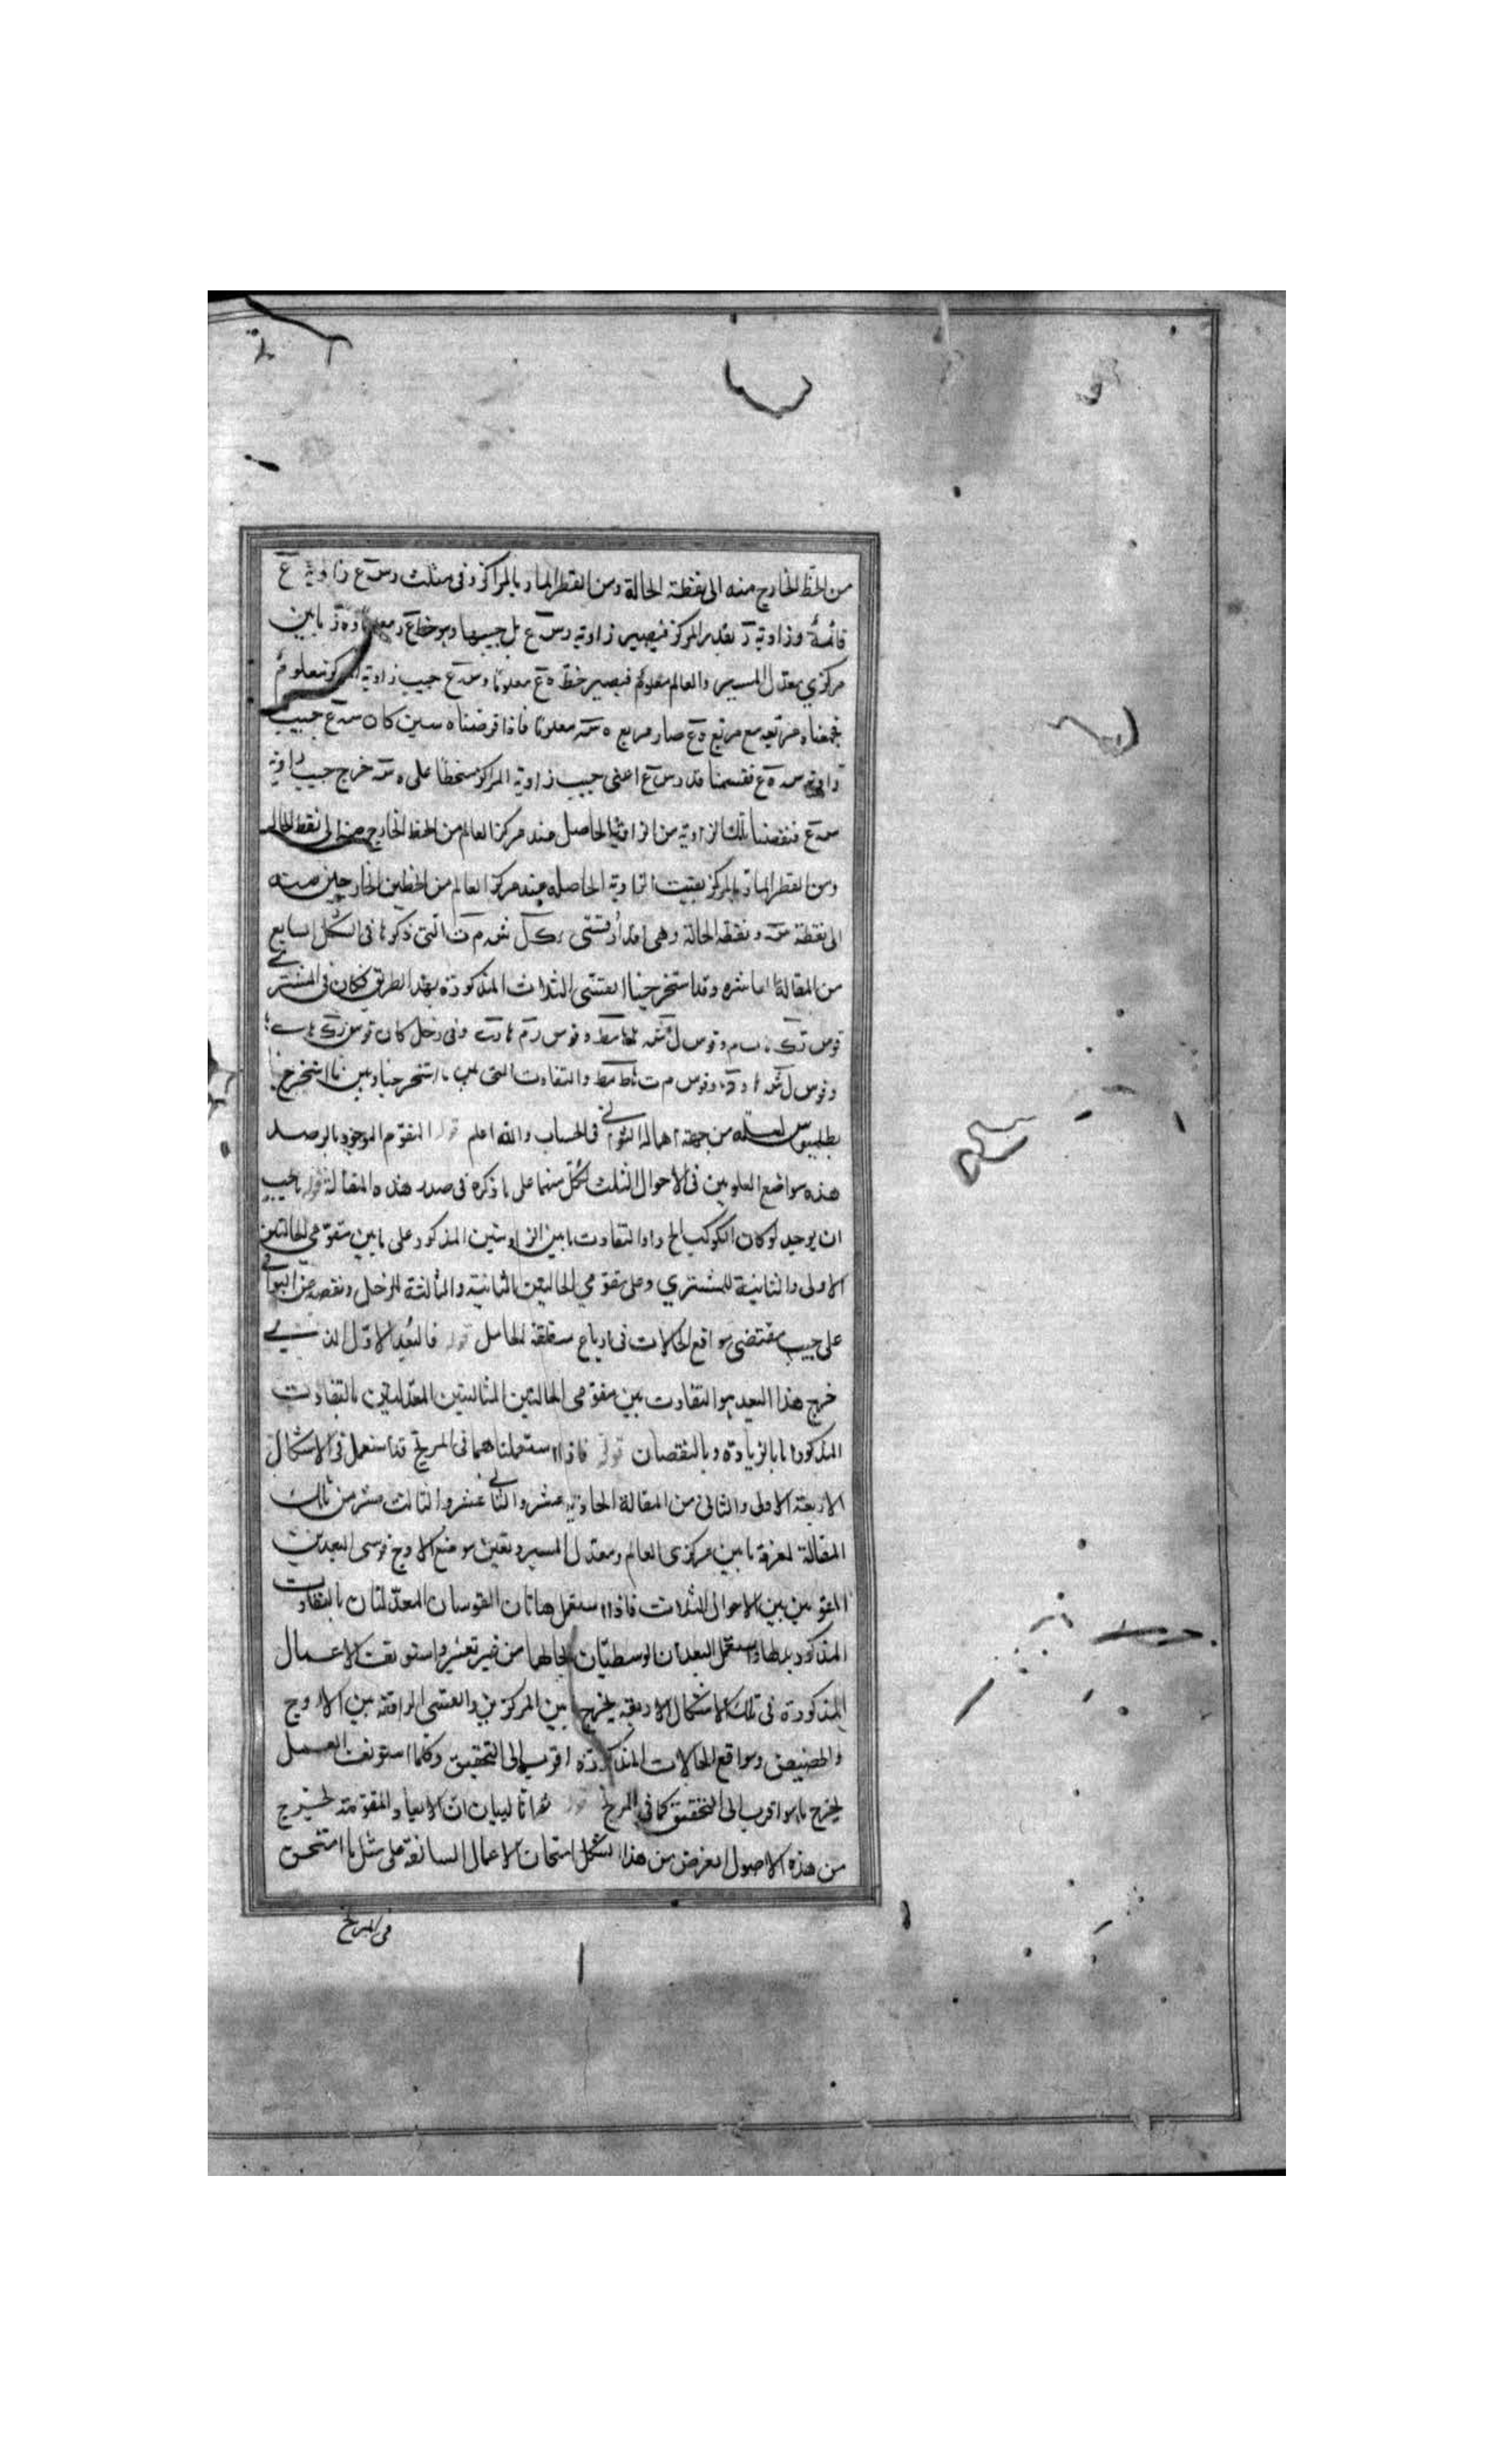 من الخط الخارج منه الى نقطة الحالة ومن القطر المار بالمراكز وفى مثلث رسع زاوية ع
قائمة وزاوية ر بقدر المركز فيصير زاوية رسع بل جيبها وهو خط ع ر وه ر ما بين
مركزي معدل المسير والعالم معلوم فيصير خط ه ع معلوما وسع جيب زاوية المركز معلوم
فجمعنا مربعه مع مربع ه ع صار مربع ه س معلوما فاذا فرضناه ستين كان سع جيب
زاوية س ه ع فقسمنا رسع اعنى جيب زاوية المركز منحطا على ه س خرج جيب زاوية
س ه ع فنقصنا تلك الزاوية من الزاوية الحاصل عند مركز العالم من الخط الخارج منه الى نقطة الحالة
ومن القطر المار بالمركز بقيت الزاوية الحاصله عند مركز العالم من الخطين الخارجين منه
الى نقطة س ونقطة الحالة وهى مقدار قسى رك ل ش م ت التى ذكرها فى الشكل السابع
من المقالة العاشره وقد استخرجنا القسى الثلاث المذكورة بهذا الطريق فكان فى المشترى
قوس وقوس ل ش وقوس وفى زحل كان قوس
وقوس ل ش وقوس م ت والتفاوت التى بين ما استخرجنا وبين ما استخرج
بطلميوس لعله من جهة اهماله الثوانى فى الحساب والله اعلم قوله المقوم الموجود بالرصد
هذه مواضع العلويين فى الاحوال الثلث لكل منهما على ما ذكره فى صدر هذه المقالة قوله ما يجب
ان يوجد لو كان الكوكب الخ زاد التفاوت ما بين الزاويتين المذكور على ما بين مقومي الحالتين
الاولى والثانية للمشتري وعلى مقومي الحالتين الثانية والثالثة للزحل ونقصه من البواقى
على حسب مقتضى مواقع الحالات فى ارباع منطقة الحامل قوله فالبعد الاول الذى
خرج هذا البعد هو التفاوت بين مقومى الحالتين المثاليتين المعدلتين بالتفاوت
المذكور اما بالزيادة وبالنقصان قوله فاذا استعملناهما فى المريخ قد استعمل فى الاشكال
الاربعة الاولى والثانى من المقالة الحادية عشر والثانى عشر والثالث عشر من تلك
المقالة لمعرفة ما بين مركزى العالم ومعدل المسير وتعين موضع الاوج قوسى البعدين
المقومين بين الاحوال الثلاث فاذا استعمل هاتان القوسان المعدلتان بالتفاوت
المذكور واستعمل البعدان الوسطيان بحالهما من غير تغير واستونفت الاعمال
المذكورة فى تلك الاشكال الاربعة يخرج ما بين المركزين والقسى الواقعة بين الاوج
والحضيض ومواقع الحالات المذكورة اقرب الى التحقيق وكلما استونفت العمل
يخرج ما هو اقرب الى التحقيق كما فى المريخ قوله لبيان ان الابعاد المقومة يخرج
من هذه الاصول الغرض من هذا الشكل امتحان الاعمال السابقة على مثل ما امتحن
فى المريخ